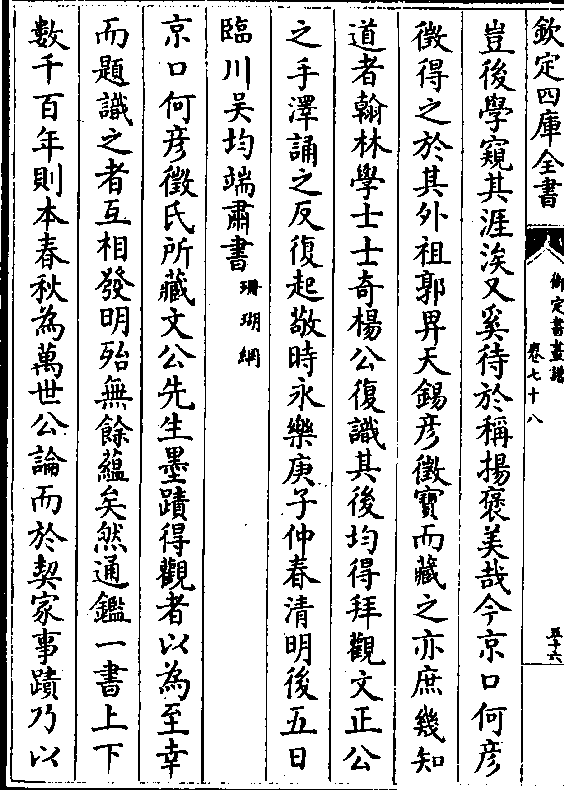 欽定四庫全書
御定書畫譜
卷七十八
五十六
豈後學窺其涯涘又奚待於稱揚褒美哉今京口何彥
徵得之於其外祖郭畀天錫彥徵寶而藏之亦庶幾知
道者翰林學士士奇楊公復識其後均得拜觀文正公
之手澤誦之反復起敬時永樂庚子仲春清明後五日
臨川吴均端肅書珊瑚網
京口何彥徵氏所藏文公先生墨蹟得觀者以為至幸
而題識之者互相發明殆無餘藴矣然通鑑一書上下
數千百年則本春秋為萬世公論而於契家事蹟乃以